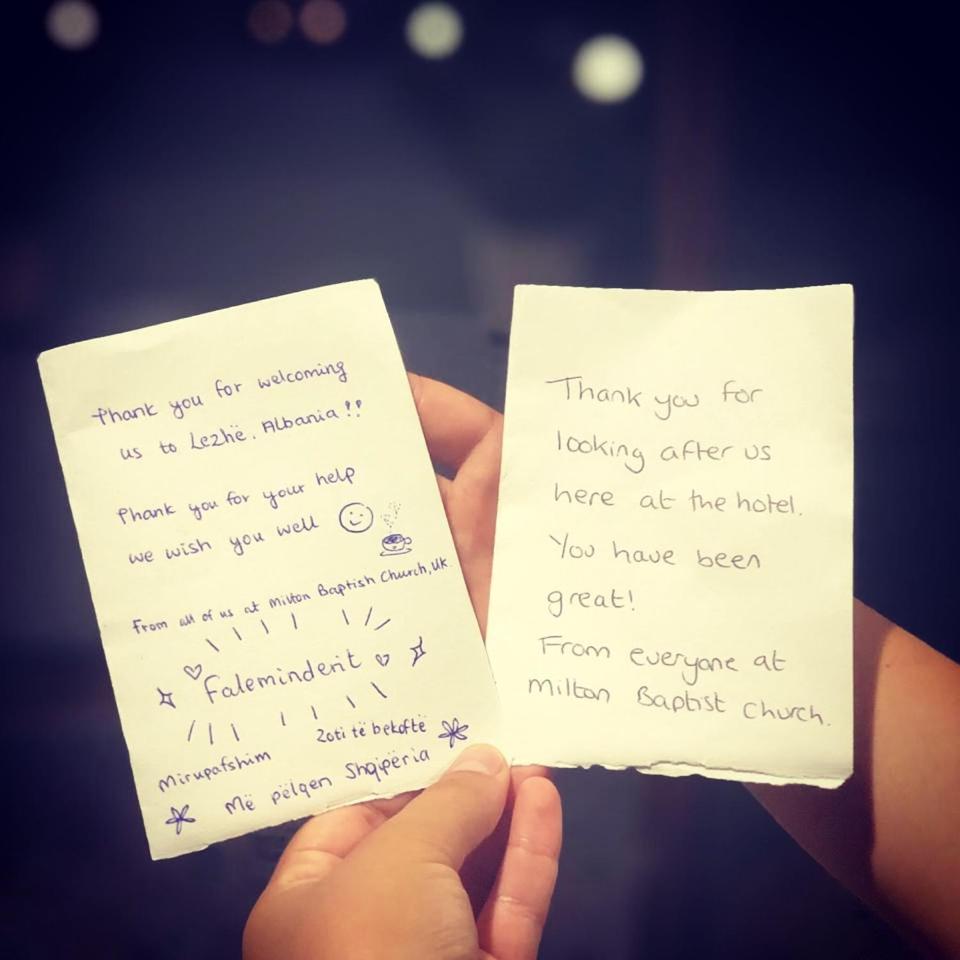 Thank you for welcoming
us to Lezhë, Albania!!
Thank you for your help
we wish you well
From all of us at Milton Baptist Church, UK.
Falemindenit
Zoti të bekoftë
Mirupafshim
Më pëlqen Shqipëria
Thank you for
looking after us
here at the hotel.
You have been
great!
From everyone at
Milton Baptist Church.